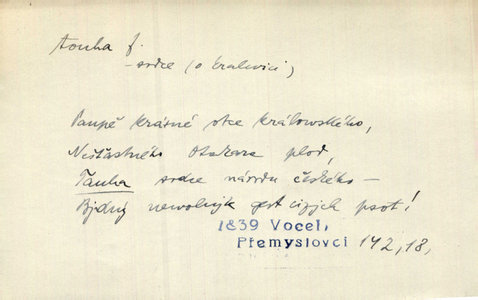 touha f.
– srdce (o kralevici)
Poupě krásné otce králowského,
Nešťastného Otakara plod,
Tauha srdce národu českého –
Bjdný newolnjk gest cizjch psot!
1839 Vocel,
Přemyslovci 142,18,